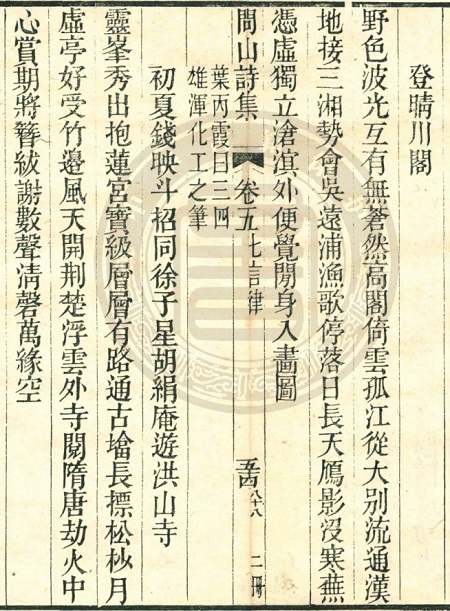 登晴川閣
野色波光互有無蒼然高閣倚雲孤江從大別流通漢
地接三湘勢會吳遠浦漁歌停落日長天鴈影沒寒蕪
憑虛獨立滄溟外便覺閒身入畫圖
閒山詩集
卷五七言律
二冊
葉丙霞曰三四
雄渾化工之筆
初夏錢映斗招同徐子星胡絹庵遊洪山寺
靈峯秀出抱蓮宮寶級層層有路通古墖長標松杪月
虛亭好受竹邊風天開荆楚浮雲外寺閱隋唐劫火中
心賞期將簪紱謝數聲淸磬萬緣空